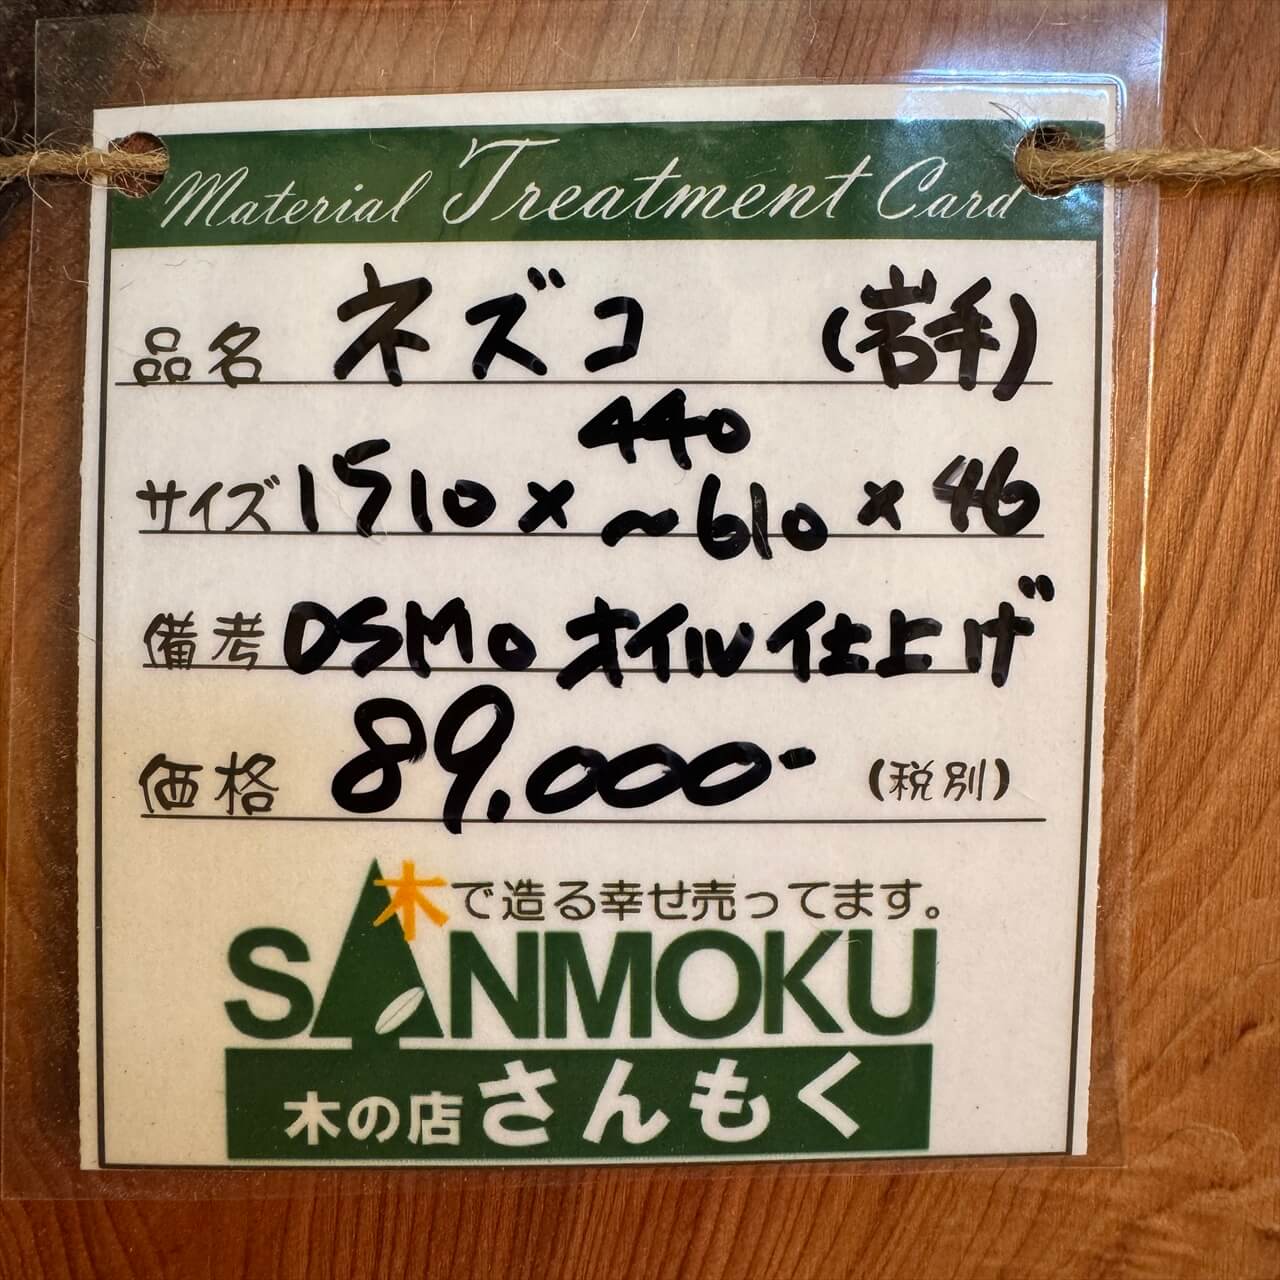 Material Treatment Card
品名 ネズコ (岩手)
サイズ 1510 × 440~610 × 46
備考 OSMO オイル仕上げ
価格 89,000- (税別)
木で造る幸せ売ってます。
SANMOKU
木の店 さんもく